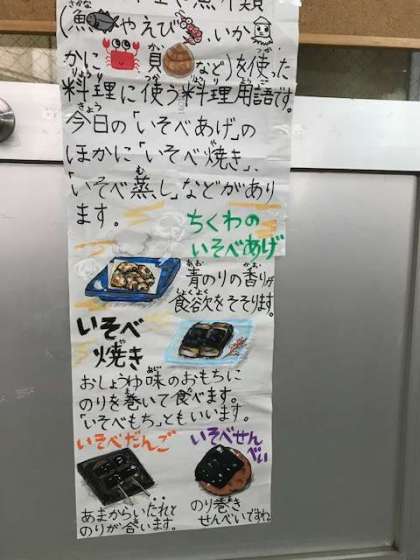 (魚やえび、いか
かに 貝など)を使った
料理に使う料理用語です。
今日の「いそべあげ」の
ほかに「いそべ焼き」、
「いそべ蒸し」などがあり
ます。
ちくわの
いそべあげ
青のりの香りが
食欲をそそります。
いそべ
焼き
おしょうゆ味のおもちに
のりを巻いて食べます。
「いそべもち」ともいいます。
いそべだんご
あまからいたれと
のりが合います。
いそべせん
べい
のり巻き
せんべいですね